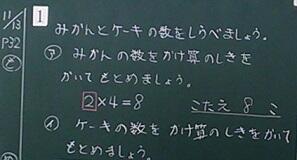 11/13
P32
1
みかんとケーキの数をしらべましょう。
ア みかんの数をかけ算のしきを
かいてもとめましょう。
2×4=8 こたえ 8こ
イ ケーキの数をかけ算のしきをかいて
もとめましょう。